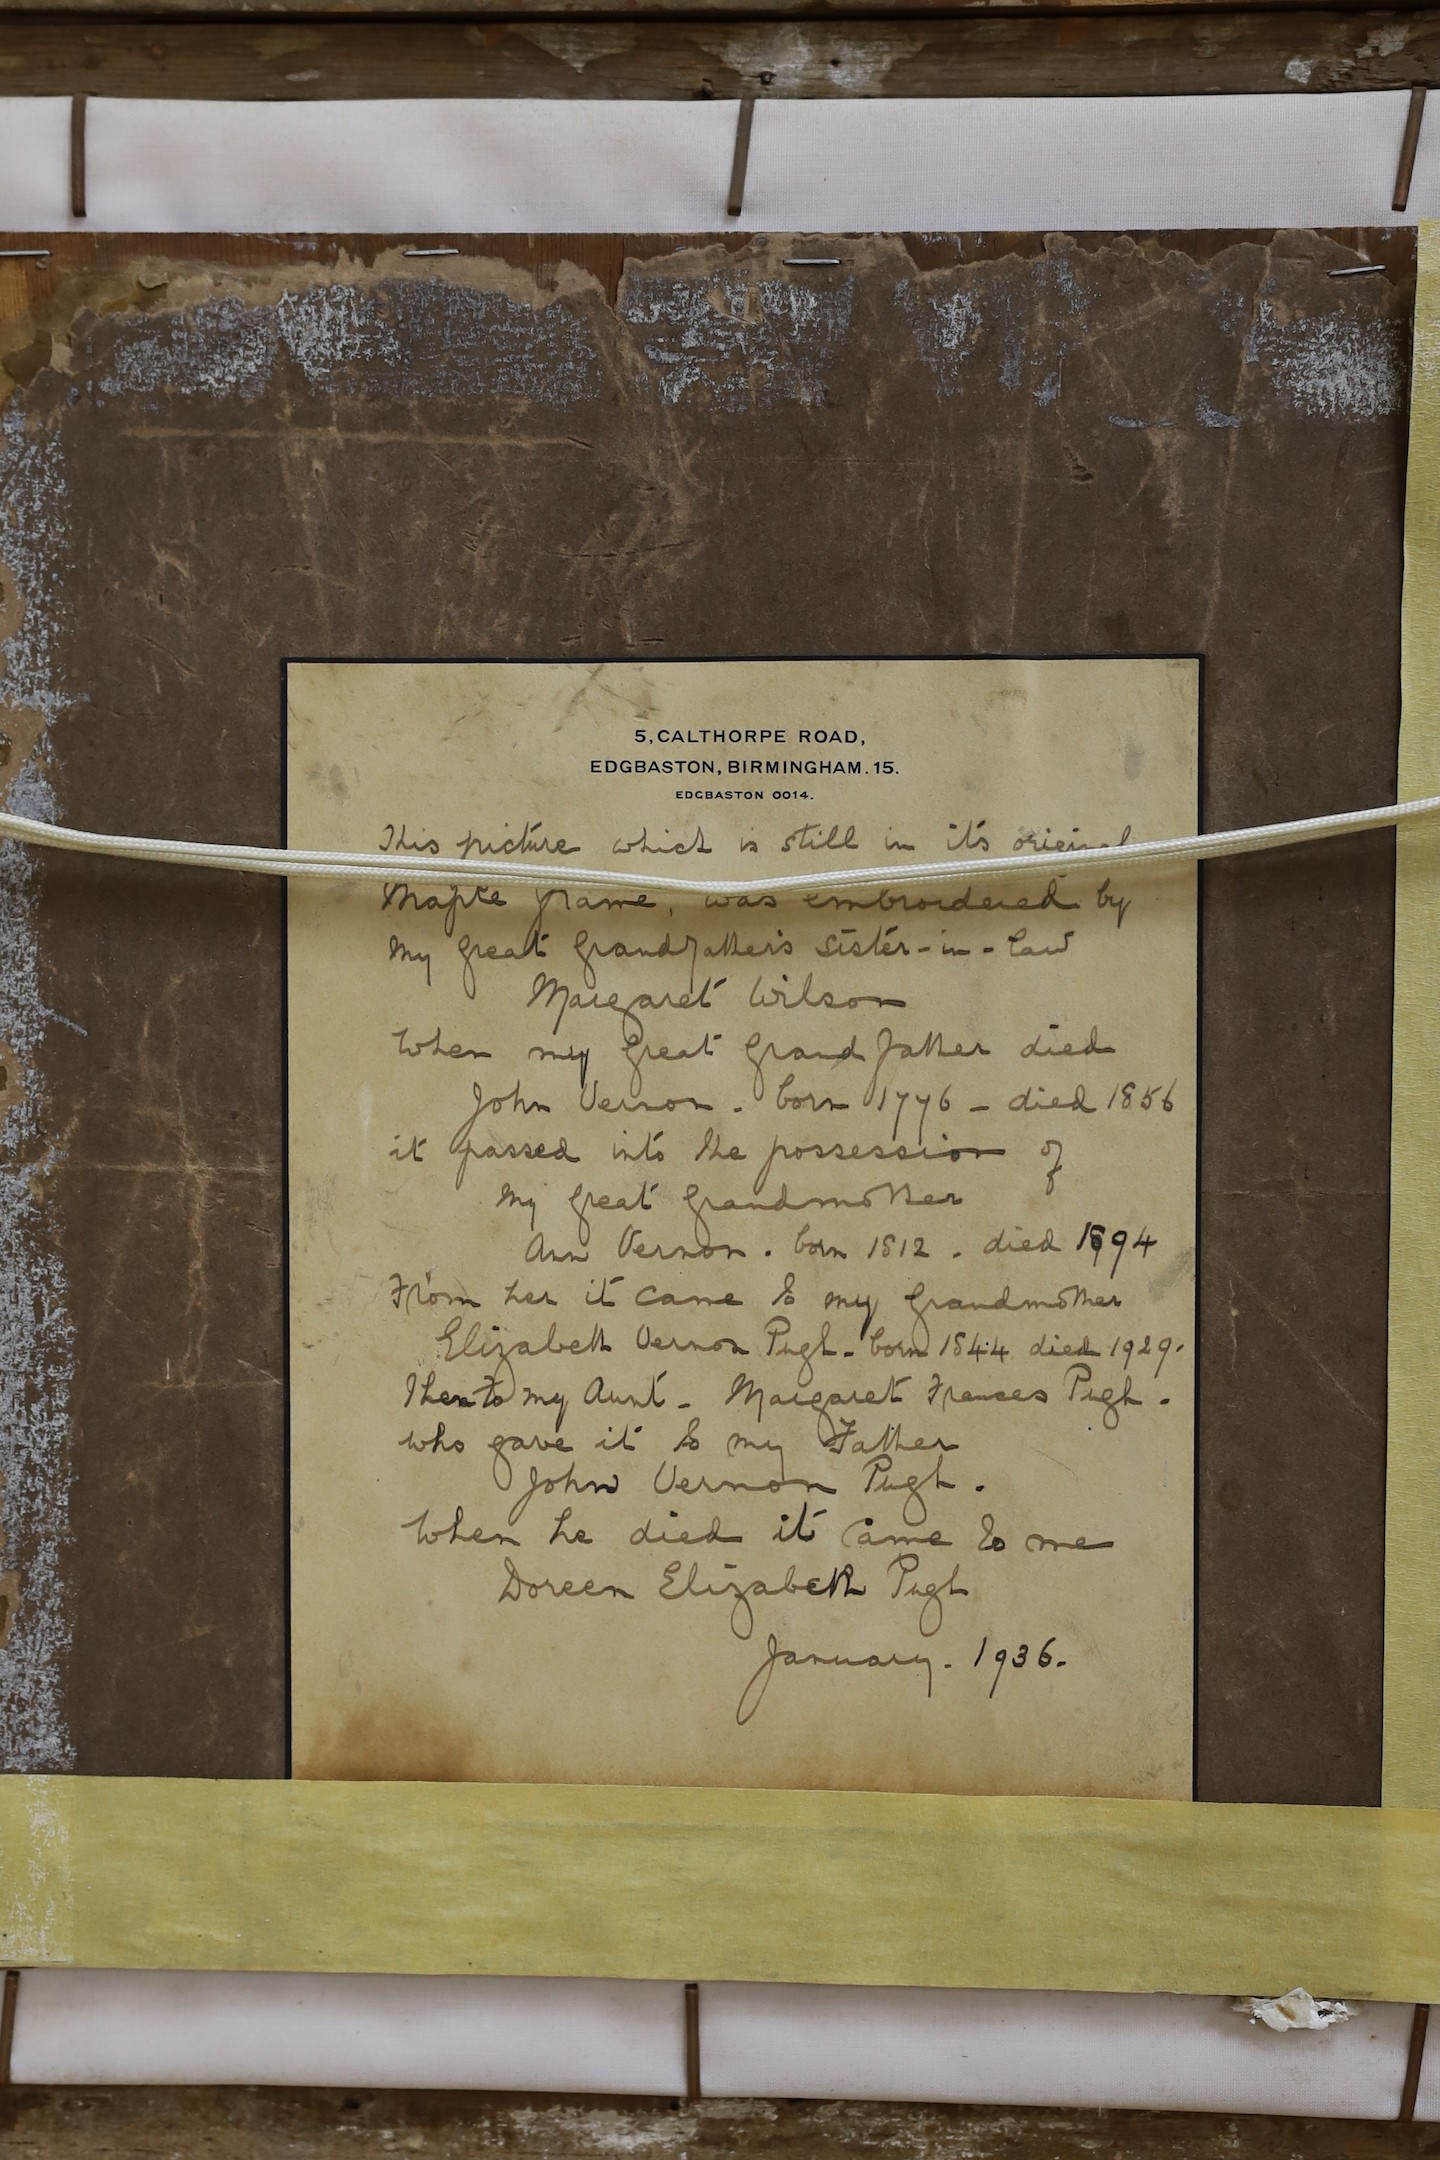 5, CALTHORPE ROAD,
EDGBASTON, BIRMINGHAM. 15.
EDGBASTON 0014.
This picture which is still in it's original
Maple frame, was embroidered by
My Great Grandfather's Sister-in-law
Margaret Wilson
When my Great Grand father died
John Vernon. born 1776 - died 1856
it passed into the possession of
My Great Grandmother
Ann Vernon. born 1812. died 1894
From her it came to my Grandmother
Elizabeth Vernon Pugh. born 1844 died 1929.
Then to my Aunt - Margaret Frances Pugh.
who gave it to my Father
John Vernon Pugh.
When he died it came to me
Doreen Elizabeth Pugh
January. 1936.